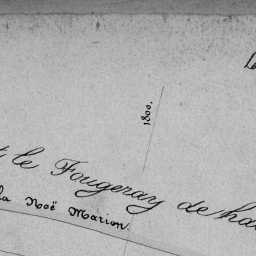 1800.
le Fougeray de
la Noë Marion.